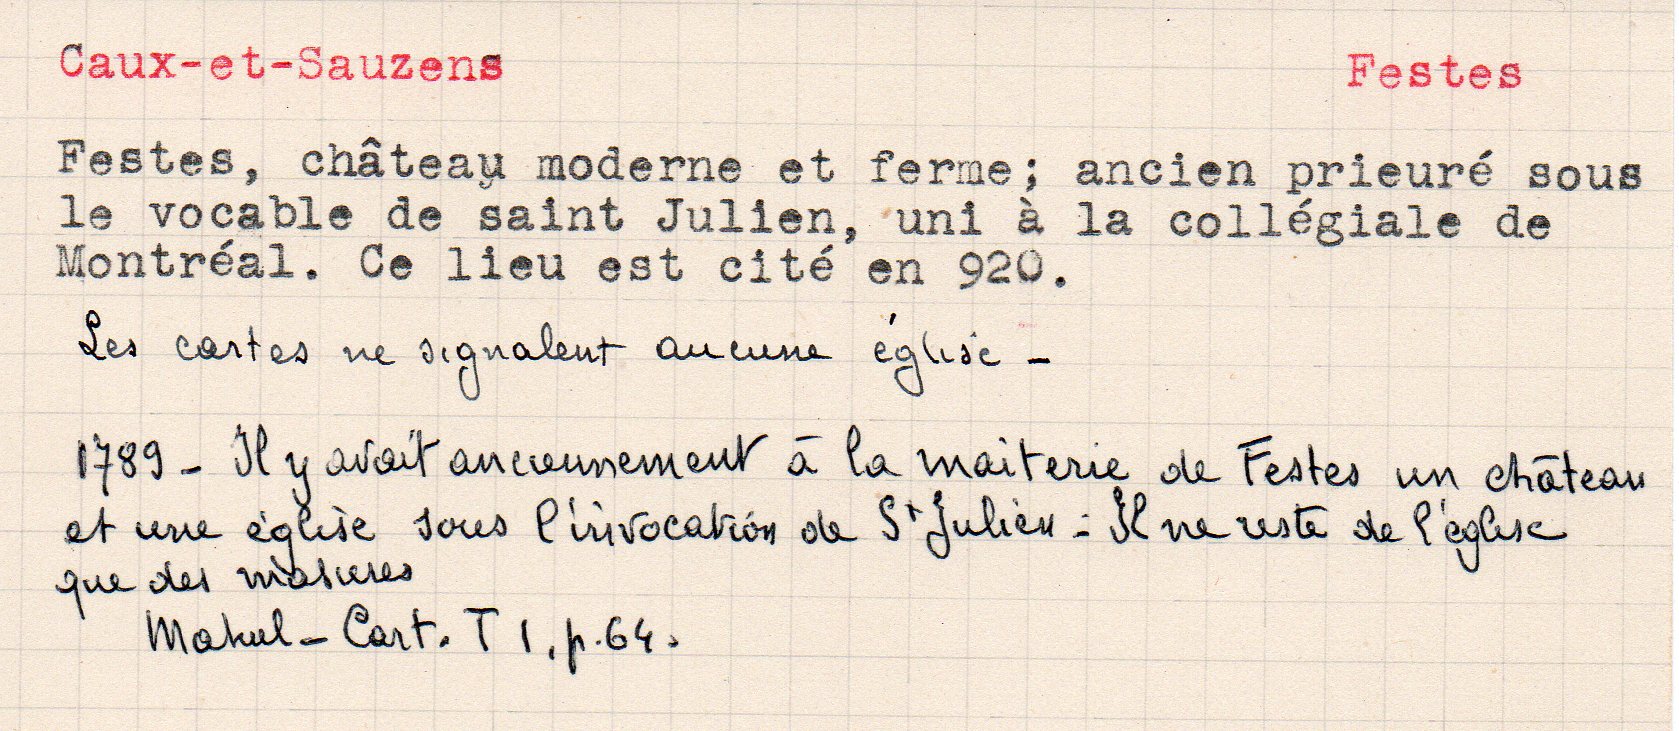 Caux-et-Sauzens Festes
Festes, château moderne et ferme; ancien prieuré sous
le vocable de saint Julien, uni à la collégiale de
Montréal. Ce lieu est cité en 920.
Les cartes ne signalent aucune église -
1789 - Il y avait anciennement à la maiterie de Festes un château
et une église sous l'invocation de St Julien - Il ne reste de l'église
que des masures
Mahul - Cart. T 1, p. 64.